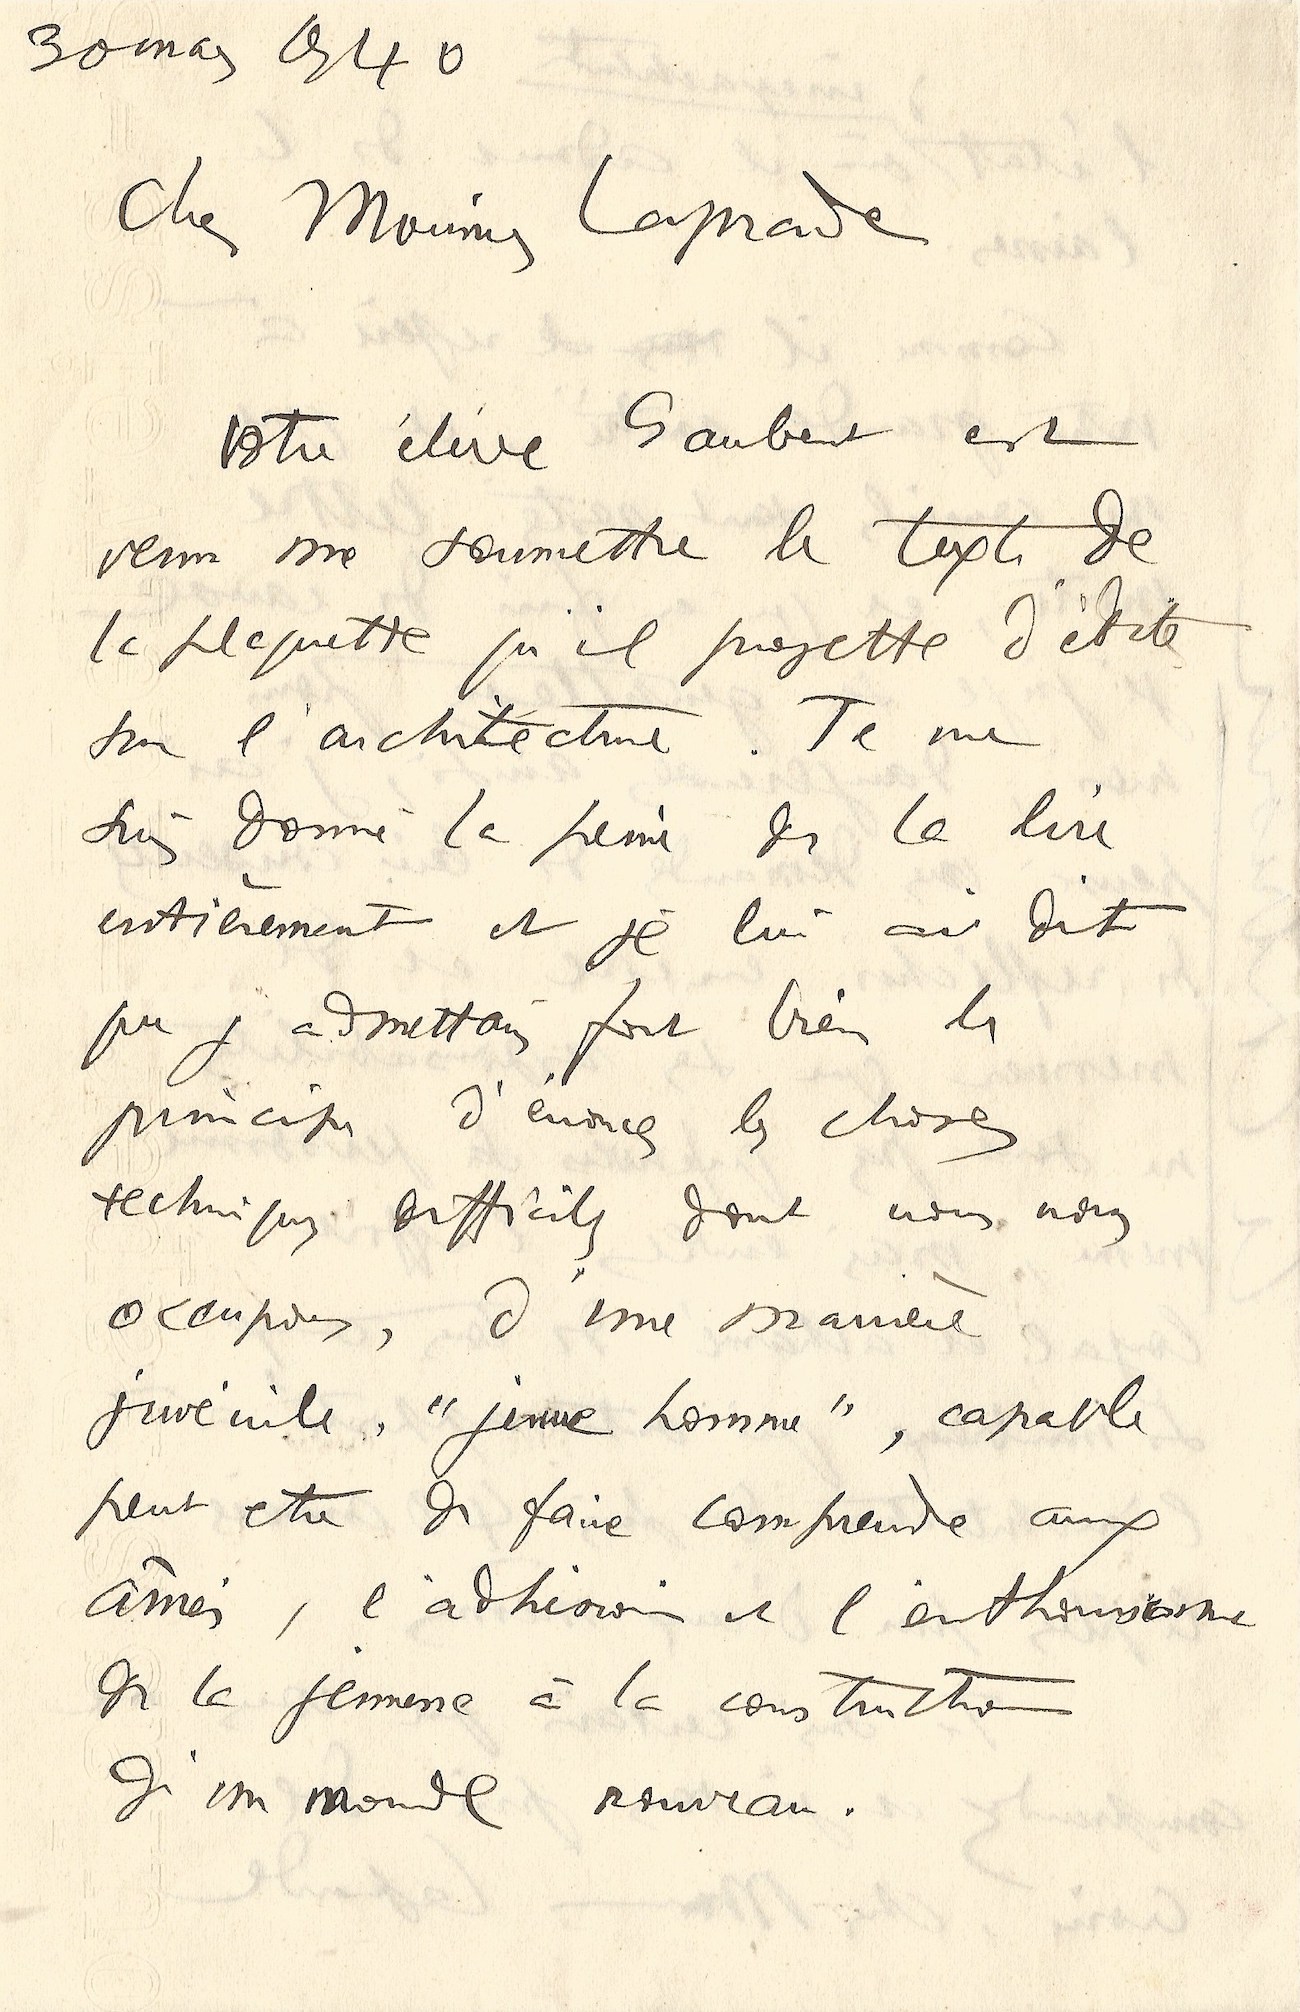 30 mars 1940
Cher Monsieur Laprade
Votre élève Gaubert est
venu me soumettre le texte de
la plaquette qu'il projette d'éditer
sur l'architecture. Je me
suis donné la peine de la lire
entièrement et je lui ai dit
que j'admettais fort bien le
principe d'énoncer les choses
techniques difficiles dont nous nous
occupons, d'une manière
juvénile, "jeune homme", capable
peut etre de faire comprendre aux
âmes, l'adhésion et l'enthousiasme
de la jeunesse à la construction
d'un monde nouveau.